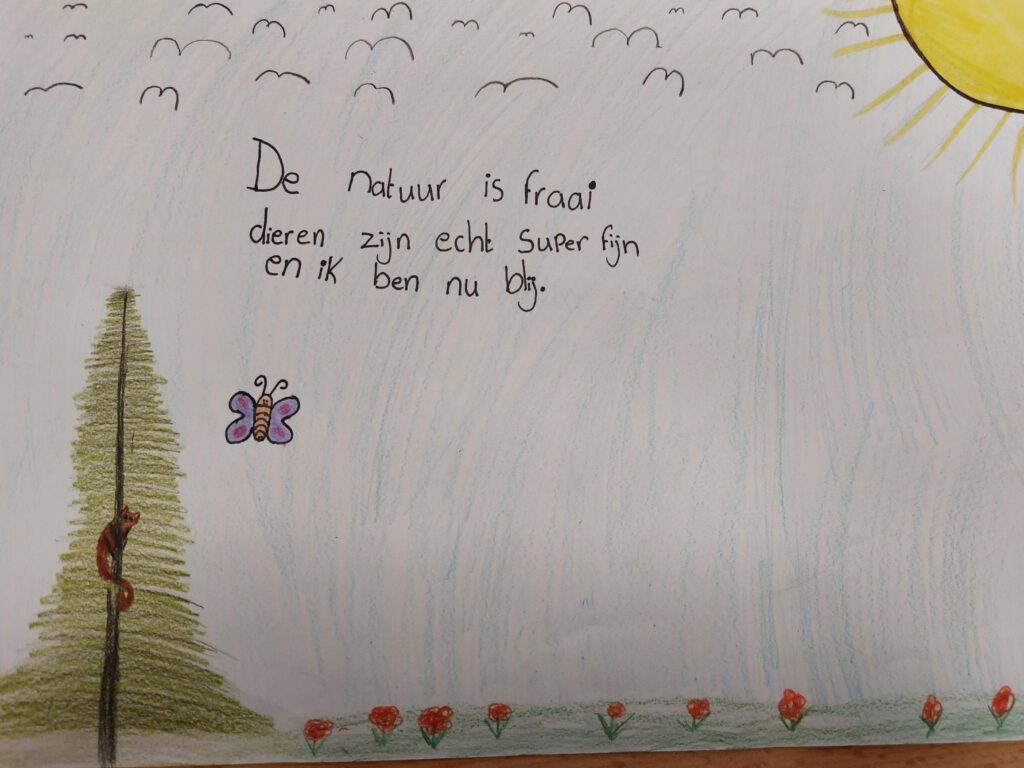 De natuur is fraai
dieren zijn echt super fijn
en ik ben nu blij.